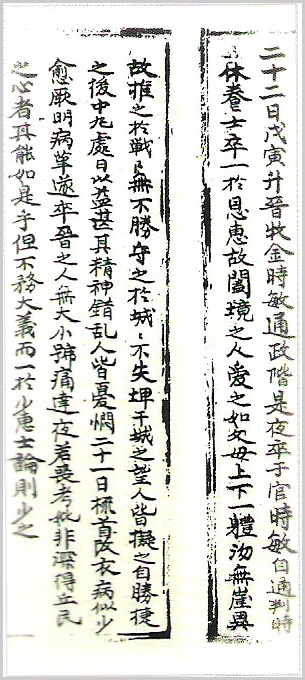 二十二日戊寅升晉牧金時敏通政階是夜卒于官時敏自通判時
休養士卒一於恩惠故闔境之人愛之如父母上下一體沕無崖異
故推之於戰戰無不勝守之於城城不失埤干城之望人皆擬之自勝捷
之後中丸處日以益甚其精神錯乱人皆憂憫二十一日梳首安衣病似少
愈厥明病革遂卒晉之人無大小號痛達夜若喪考妣非深得士民
之心者其能如是乎但不務大義而一於少惠士論則少之